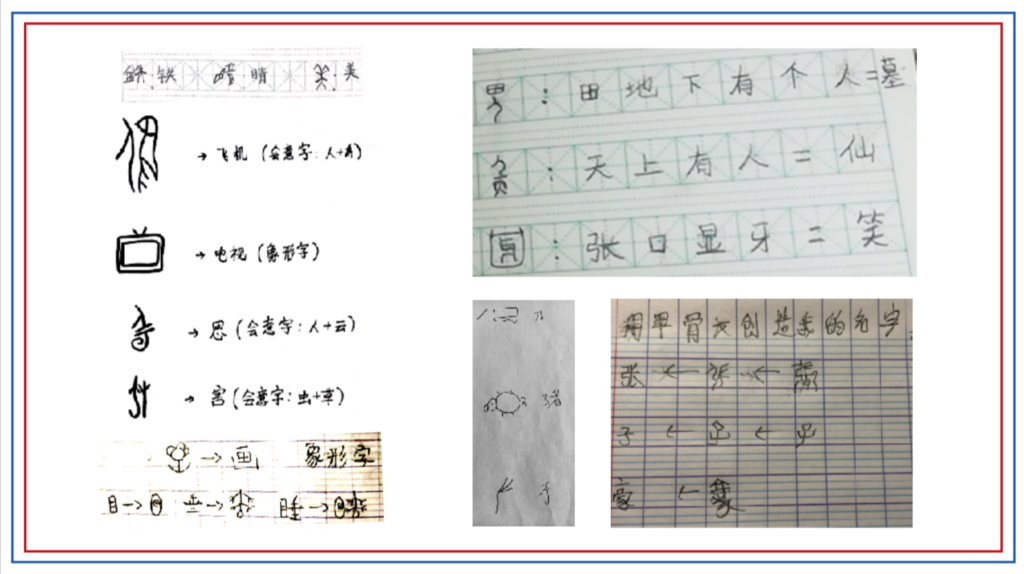 铁 晴 美
→ 飞机 (会意字:人+鸟)
→ 电视 (象形字)
→ 思 (会意字:人+云)
→ 害 (会意字:虫+草)
→ 画 象形字
目→ 垂→ 睡→
: 田地下有个人=墓
: 天上有人=仙
: 张口显牙=笑
猪
手
用甲骨文创造我的名字.
张 ← ←
子 ← ←
豪 ←